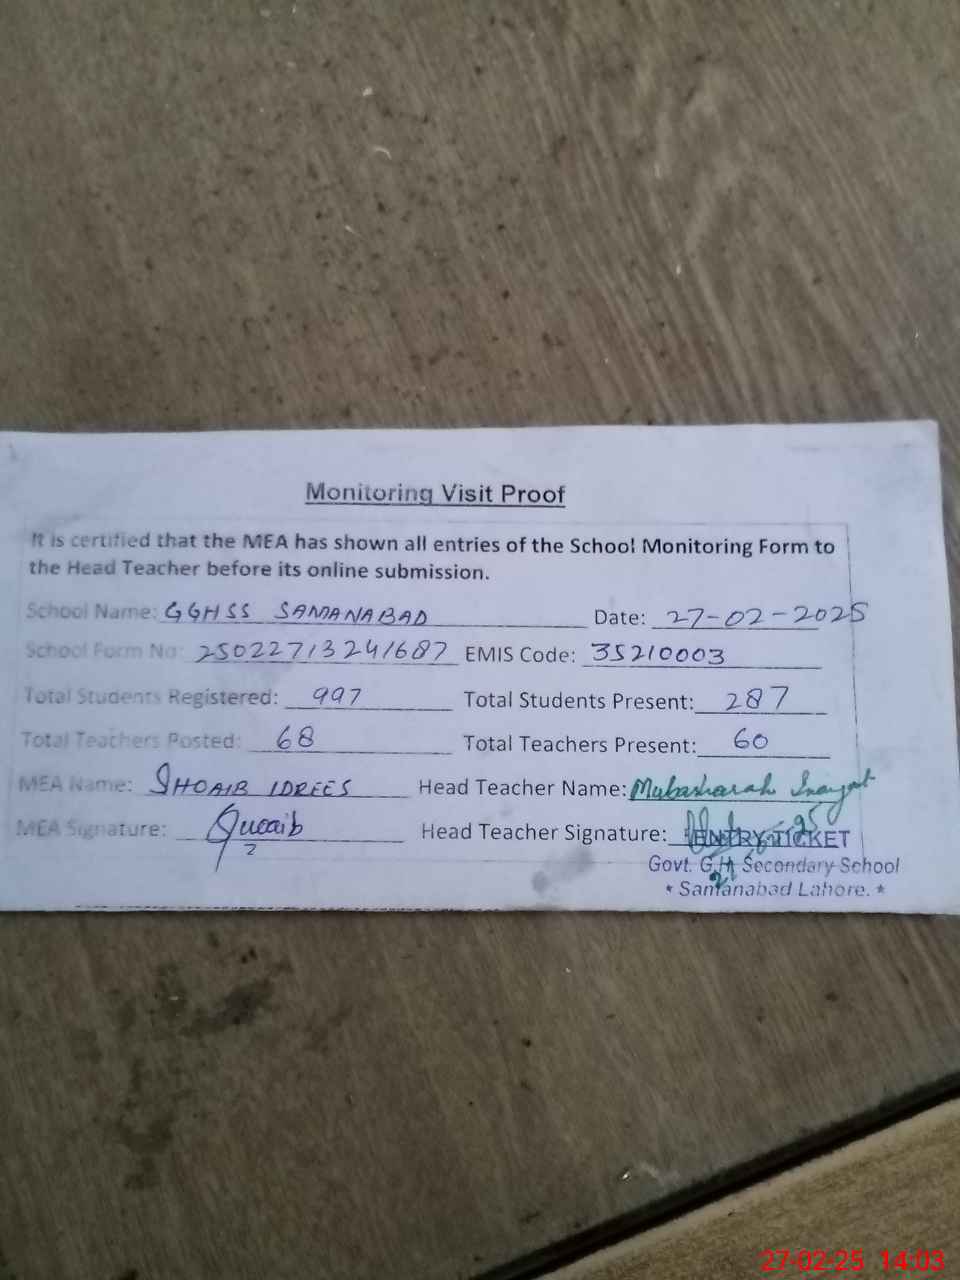 Monitoring Visit Proof
It is certified that the MEA has shown all entries of the School Monitoring Form to
the Head Teacher before its online submission.
School Name: GGHSS SAMANABAD Date: 27-02-2025
School Form No: 25022713241687 EMIS Code: 35210003
Total Students Registered: 997 Total Students Present: 287
Total Teachers Posted: 68 Total Teachers Present: 60
MEA Name: SHOAIB IDREES Head Teacher Name: Mubasharah Inayat
MEA Signature: Shoaib Head Teacher Signature:
ENTRY TICKET
Govt. G.H Secondary School
* Samanabad Lahore. *
27-02-25 14:03